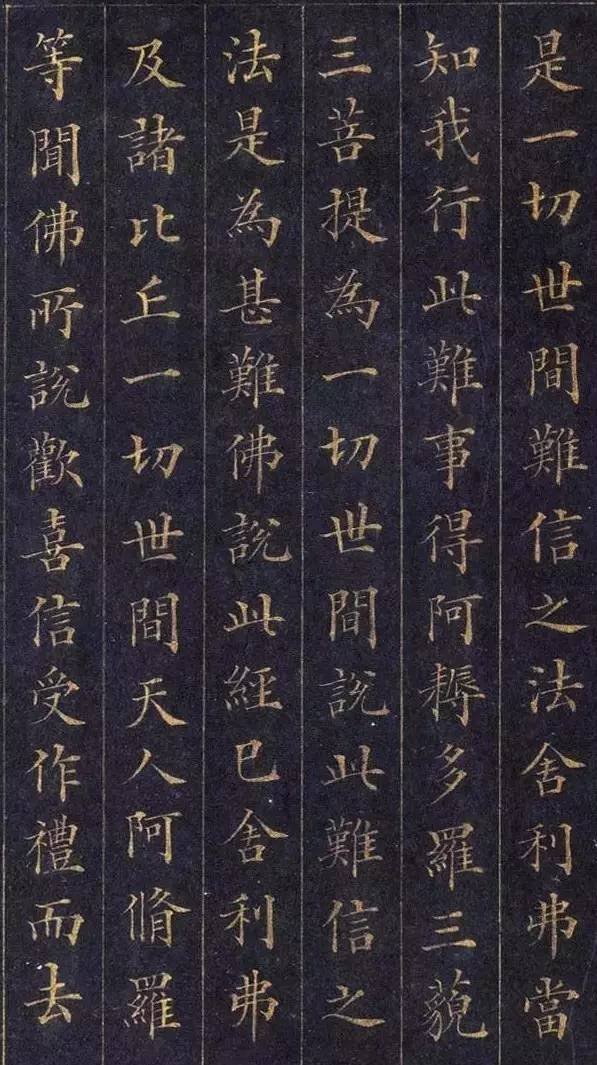 是一切世間難信之法舍利弗當
知我行此難事得阿耨多羅三藐
三菩提為一切世間說此難信之
法是為甚難佛說此經已舍利弗
及諸比丘一切世間天人阿脩羅
等聞佛所說歡喜信受作禮而去